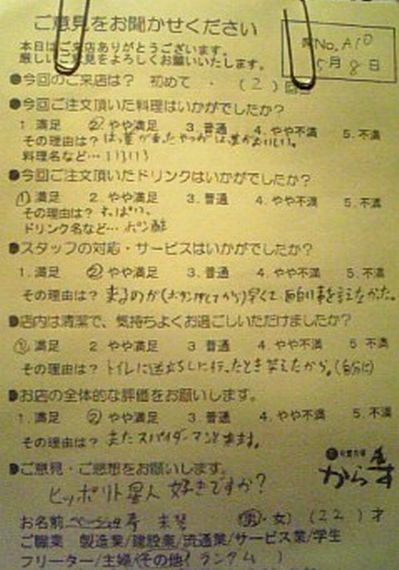 ご意見をお聞かせください
本日はご来店ありがとうございます。
厳しいご意見をよろしくお願いいたします。
席No. A10
5月8日
●今回のご来店は? 初めて ・ (2)回目
●今回ご注文頂いた料理はいかがでしたか?
1.満足 2.やや満足 3.普通 4.やや不満 5.不満
その理由は?
料理名など…いろいろ
●今回ご注文頂いたドリンクはいかがでしたか?
1.満足 2.やや満足 3.普通 4.やや不満 5.不満
その理由は? すっぱい。
ドリンク名など… ポン酢
●スタッフの対応・サービスはいかがでしたか?
1.満足 2.やや満足 3.普通 4.やや不満 5.不満
その理由は? 来るのが(ボタン押してから)早くて、面白い事を言えなかった。
●店内は清潔で、気持ちよくお過ごしいただけましたか?
1.満足 2.やや満足 3.普通 4.やや不満 5.不満
その理由は? トイレに逆立ちしに行ったとき笑えたから。(自分に)
●お店の全体的な評価をお願いします。
1.満足 2.やや満足 3.普通 4.やや不満 5.不満
その理由は? またスパイダーマンと来ます。
●ご意見・ご感想をお願いします。
ヒッポリト星人 好きですか?
からす
お名前 (男・女) (22)才
ご職業 製造業/建設業/流通業/サービス業/学生
フリーター/主婦/その他(ランダム)